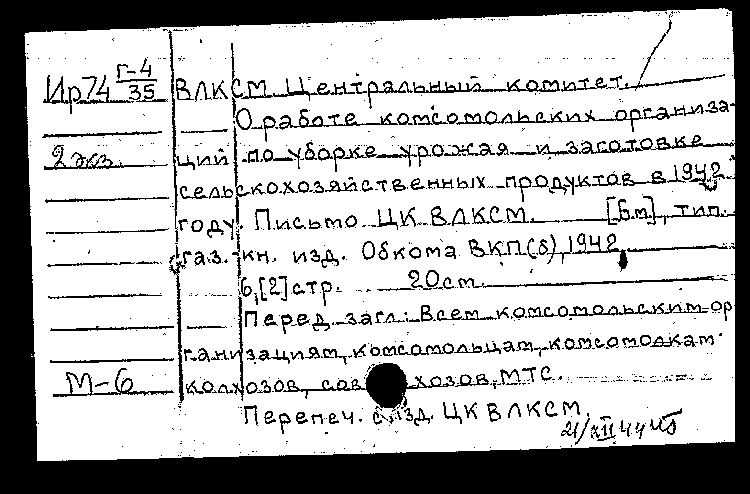 Ир74 Г-4/35 ВЛКСМ. Центральный комитет.
О работе комсомольских организа-
2 экз. ций по уборке урожая и заготовке
сельскохозяйственных продуктов в 1942
году. Письмо ЦК ВЛКСМ. [Б.м], тип.
газ.-кн. изд. Обкома ВКП(б), 1942
6,[2]стр. 20см.
Перед загл.: Всем комсомольским ор
ганизациям, комсомольцам, комсомолкам
М-6 колхозов, совхозов, МТС.
Перепеч. с изд. ЦК ВЛКСМ.
21/XII 44